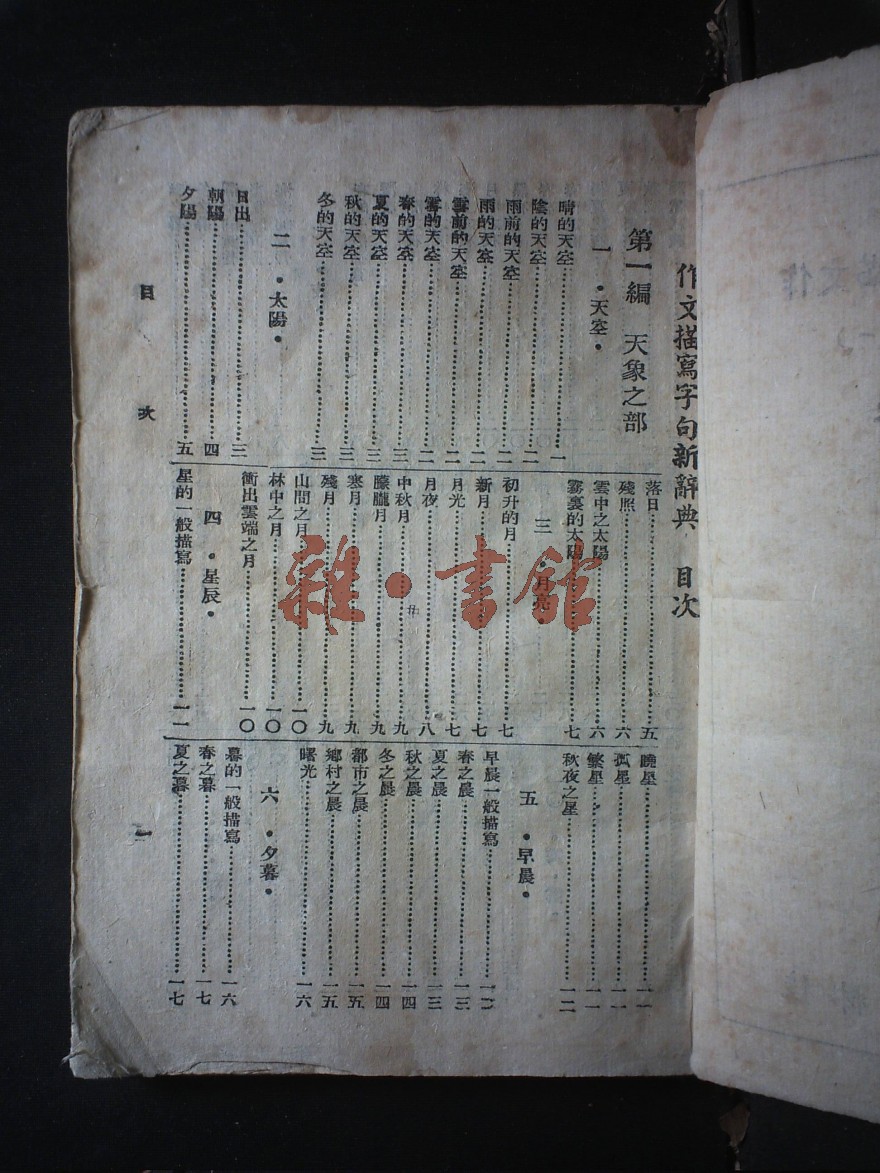 作文描寫字句新辭典 目次
第一編 天象之部
一・天空・
晴的天空……一
陰的天空……二
雨前的天空……二
雨的天空……二
雲前的天空……二
雲的天空……二
春的天空……三
夏的天空……三
秋的天空……三
冬的天空……三
二・太陽・
日出……三
朝陽……四
夕陽……五
落日……五
殘照……六
雲中之太陽……六
霧裏的太陽……七
三・月亮・
初升的月……七
新月……七
月光……七
月夜……八
中秋月……九
朦朧月……九
寒月……九
殘月……九
山間之月……一〇
林中之月……一〇
衝出雲端之月……一〇
四・星辰・
星的一般描寫……一一
曉星……一一
孤星……一一
繁星……一一
秋夜之星……一二
五・早晨・
早晨一般描寫……一二
春之晨……一三
夏之晨……一三
秋之晨……一四
冬之晨……一四
都市之晨……一五
鄉村之晨……一五
曙光……一六
六・夕暮・
暮的一般描寫……一六
春之暮……一七
夏之暮……一七
目次
一
雜・書館